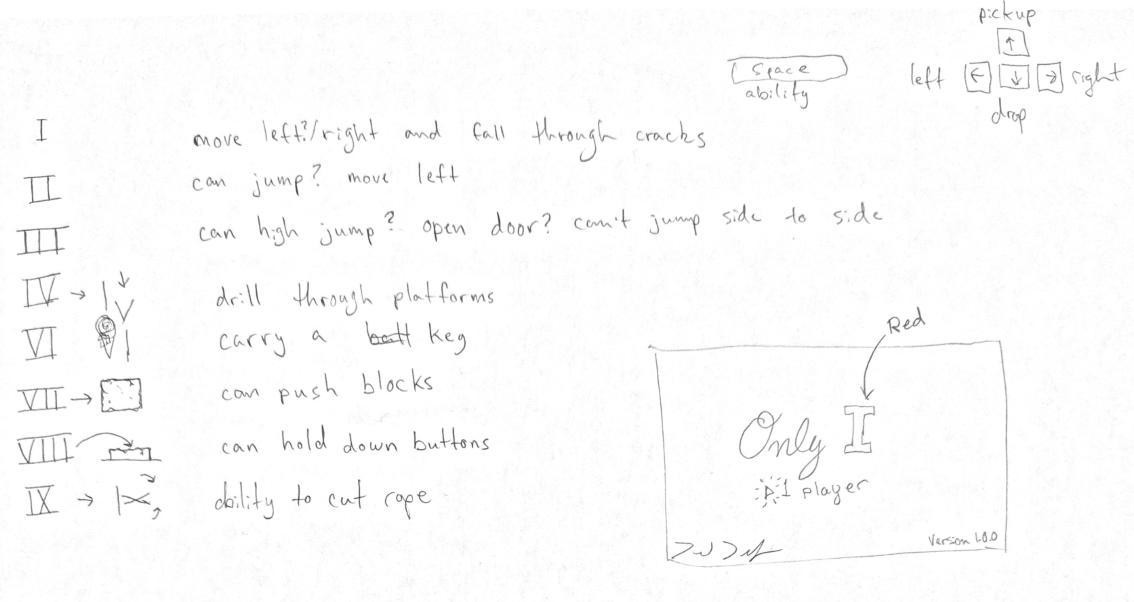 pickup
↑
Space
ability
left ← ↓ → right
drop
I move left?/right and fall through cracks
II can jump? move left
III can high jump? open door? can't jump side to side
IV → drill through platforms
VI carry a keg
VII → can push blocks
VIII can hold down buttons
IX → ability to cut rope
Red
Only I
1 player
Version 1.0.0